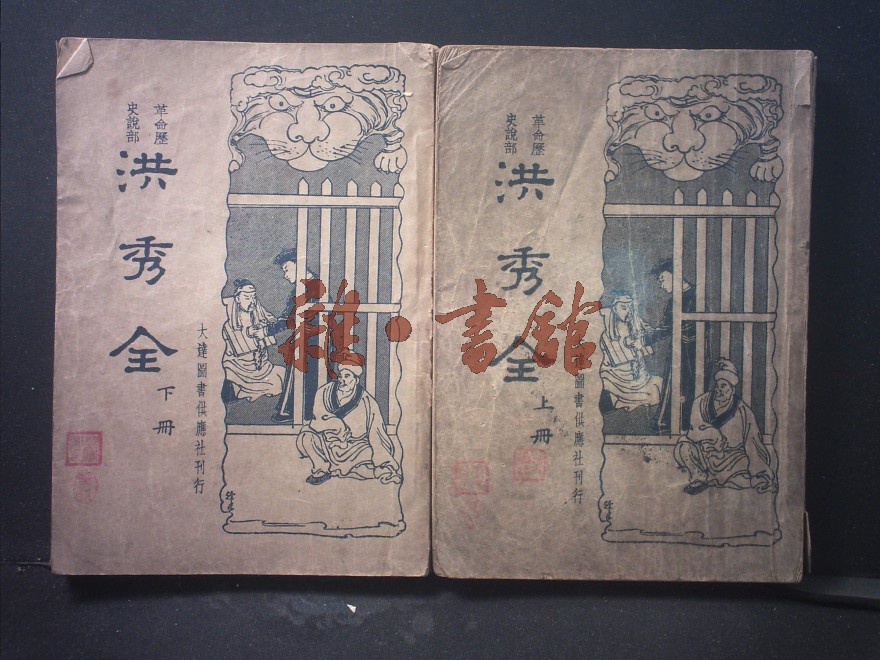 革命歷
史說部
洪秀全
上冊
圖書供應社刊行
革命歷
史說部
洪秀全
下冊
大達圖書供應社刊行
雜·書館